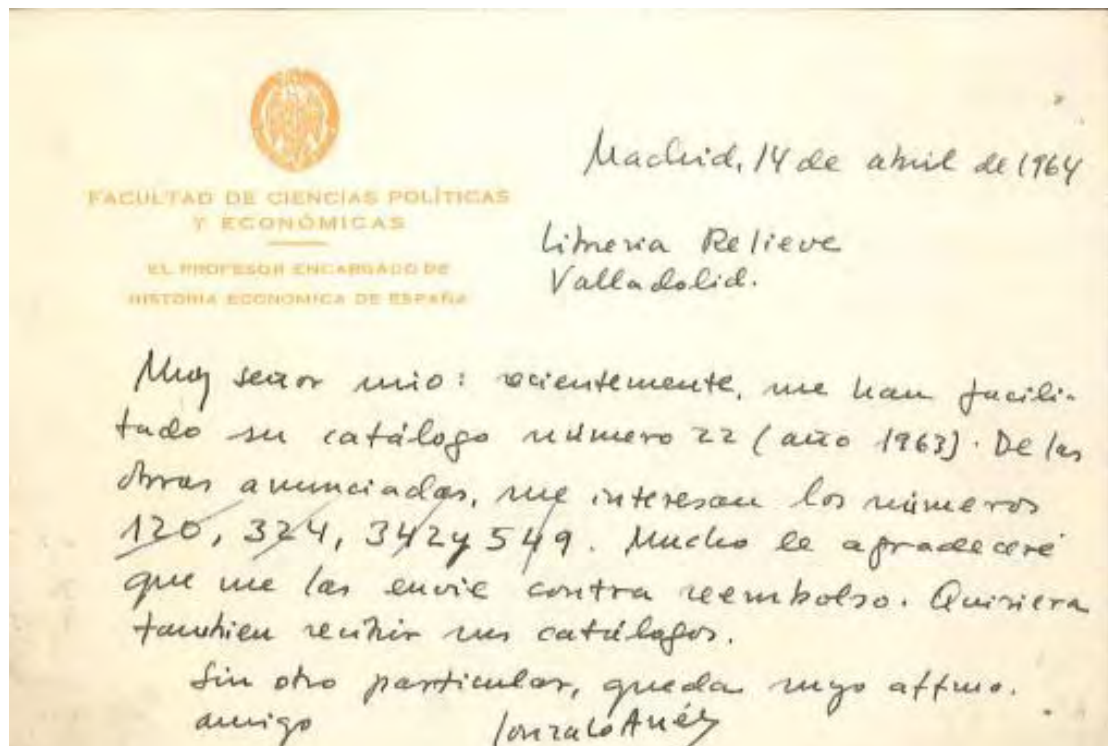 FACULTAD DE CIENCIAS POLÍTICAS
Y ECONÓMICAS
EL PROFESOR ENCARGADO DE
HISTORIA ECONOMICA DE ESPAÑA
Madrid, 14 de abril de 1964
Libreria Relieve
Valladolid.
Muy señor mio: recientemente, me han facili-
tado su catálogo número 22 (año 1963). De las
obras anunciadas, me interesan los números
120, 324, 342 y 549. Mucho le agradeceré
que me las envie contra reembolso. Quisiera
tambien recibir sus catálogos.
Sin otro particular, queda suyo affmo.
amigo Gonzalo Anés